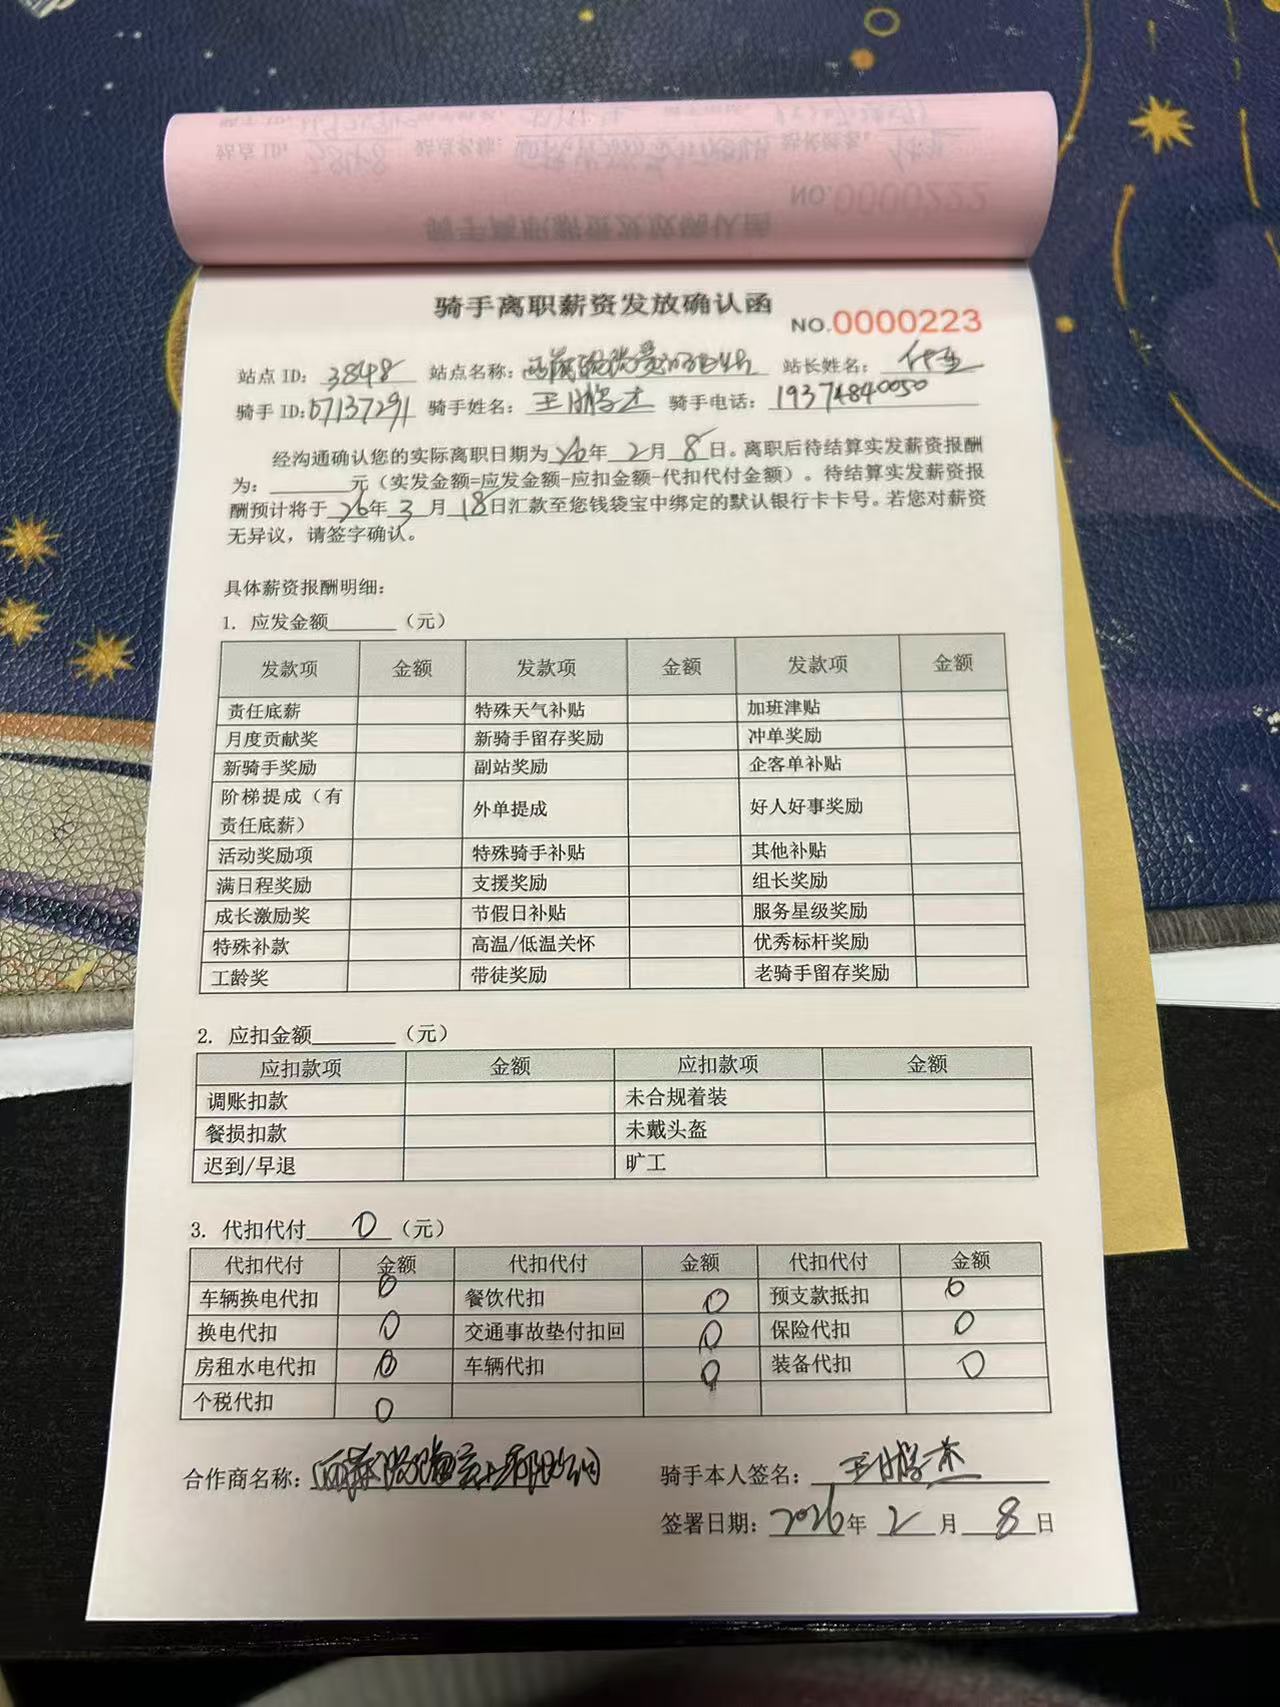 骑手离职薪资发放确认函
NO.0000223
站点 ID: 3848 站点名称: 站长姓名:
骑手 ID: 07137291 骑手姓名: 王 杰 骑手电话: 19374840050
经沟通确认您的实际离职日期为 26 年 2 月 8 日。离职后待结算实发薪资报酬
为: ______元（实发金额=应发金额-应扣金额-代扣代付金额）。待结算实发薪资报
酬预计将于 26 年 3 月 18 日汇款至您钱袋宝中绑定的默认银行卡卡号。若您对薪资
无异议，请签字确认。
具体薪资报酬明细:
1. 应发金额______（元）
发款项 金额 发款项 金额 发款项 金额
责任底薪 特殊天气补贴 加班津贴
月度贡献奖 新骑手留存奖励 冲单奖励
新骑手奖励 副站奖励 企客单补贴
阶梯提成（有责任底薪） 外单提成 好人好事奖励
活动奖励项 特殊骑手补贴 其他补贴
满日程奖励 支援奖励 组长奖励
成长激励奖 节假日补贴 服务星级奖励
特殊补款 高温/低温关怀 优秀标杆奖励
工龄奖 带徒奖励 老骑手留存奖励
2. 应扣金额______（元）
应扣款项 金额 应扣款项 金额
调账扣款 未合规着装
餐损扣款 未戴头盔
迟到/早退 旷工
3. 代扣代付 0 （元）
代扣代付 金额 代扣代付 金额 代扣代付 金额
车辆换电代扣 0 餐饮代扣 0 预支款抵扣 0
换电代扣 0 交通事故垫付扣回 0 保险代扣 0
房租水电代扣 0 车辆代扣 0 装备代扣 0
个税代扣 0
合作商名称: 骑手本人签名: 王 杰
签署日期: 2026 年 2 月 8 日